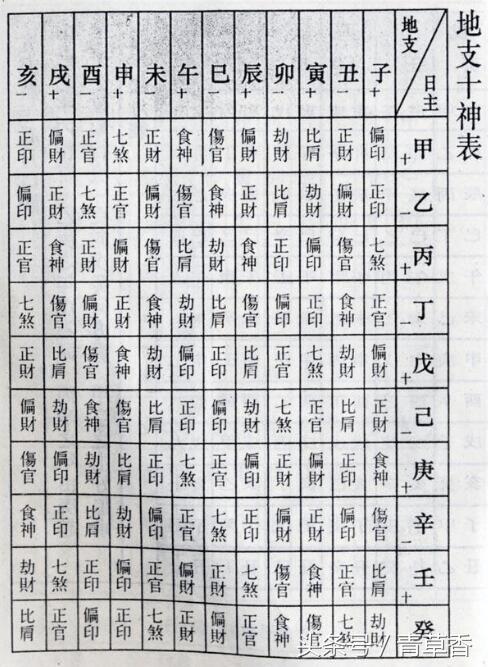 地支十神表
地支 日主 子+ 丑- 寅+ 卯- 辰+ 巳- 午+ 未- 申+ 酉- 戌+ 亥-
甲+ 偏印 正財 比肩 劫財 偏財 傷官 食神 正財 七煞 正官 偏財 正印
乙- 正印 偏財 劫財 比肩 正財 食神 傷官 偏財 正官 七煞 正財 偏印
丙+ 七煞 傷官 偏印 正印 食神 劫財 比肩 傷官 偏財 正財 食神 正官
丁- 正官 食神 正印 偏印 傷官 比肩 劫財 食神 正財 偏財 傷官 七煞
戊+ 偏財 劫財 七煞 正官 比肩 正印 偏印 劫財 食神 傷官 比肩 正財
己- 正財 比肩 正官 七煞 劫財 偏印 正印 比肩 傷官 食神 劫財 偏財
庚+ 食神 正印 偏財 正財 偏印 正官 七煞 正印 比肩 劫財 偏印 傷官
辛- 傷官 偏印 正財 偏財 正印 七煞 正官 偏印 劫財 比肩 正印 食神
壬+ 比肩 正官 食神 傷官 七煞 正財 偏財 正官 偏印 正印 七煞 劫財
癸 劫財 七煞 傷官 食神 正官 偏財 正財 七煞 正印 偏印 正官 比肩
头条号/青草香